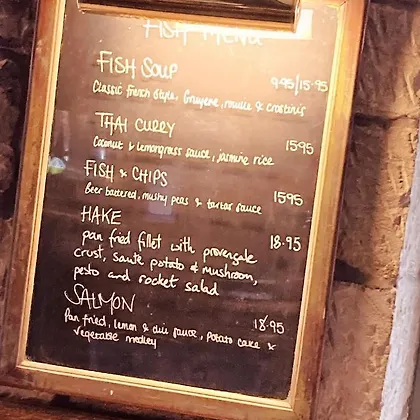 FISH MENU
FISH SOUP 9.95/15.95
Classic french style, Gruyere, rouille & crostinis
THAI CURRY 15.95
Coconut & lemongrass sauce, jasmine rice
FISH & CHIPS 15.95
Beer battered, mushy peas & tartar sauce
HAKE 18.95
pan fried fillet with provengale
crust, saute potato & mushroom,
pesto and rocket salad
SALMON 18.95
Pan fried, lemon & dill sauce, potato cake &
vegetable medley